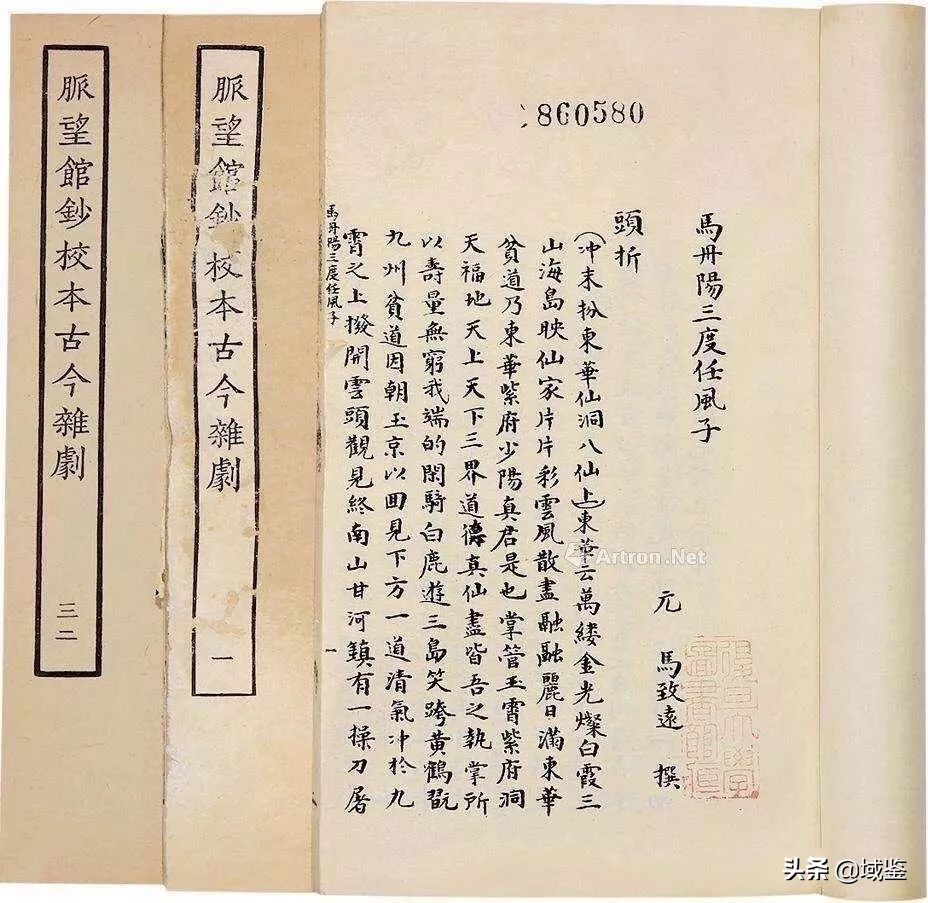 860580
馬丹陽三度任風子
元 馬致遠 撰
頭折
(冲末扮東華仙洞八仙上)東華云萬縷金光燦白霞三
山海島映仙家片片彩雲風散盡融融麗日滿東華
貧道乃東華紫府少陽真君是也掌管玉霄紫府洞
天福地天上天下三界道德真仙盡皆吾之執掌所
以壽量無窮我端的閑騎白鹿遊三島笑跨黃鶴翫
九州貧道因朝玉京以囬見下方一道清氣冲於九
霄之上撥開雲頭觀見終南山甘河鎮有一操刀屠
馬丹陽三度任風子
一
脈望館鈔校本古今雜劇 一
脈望館鈔校本古今雜劇 三二
Artron.Net
头条 @域鉴